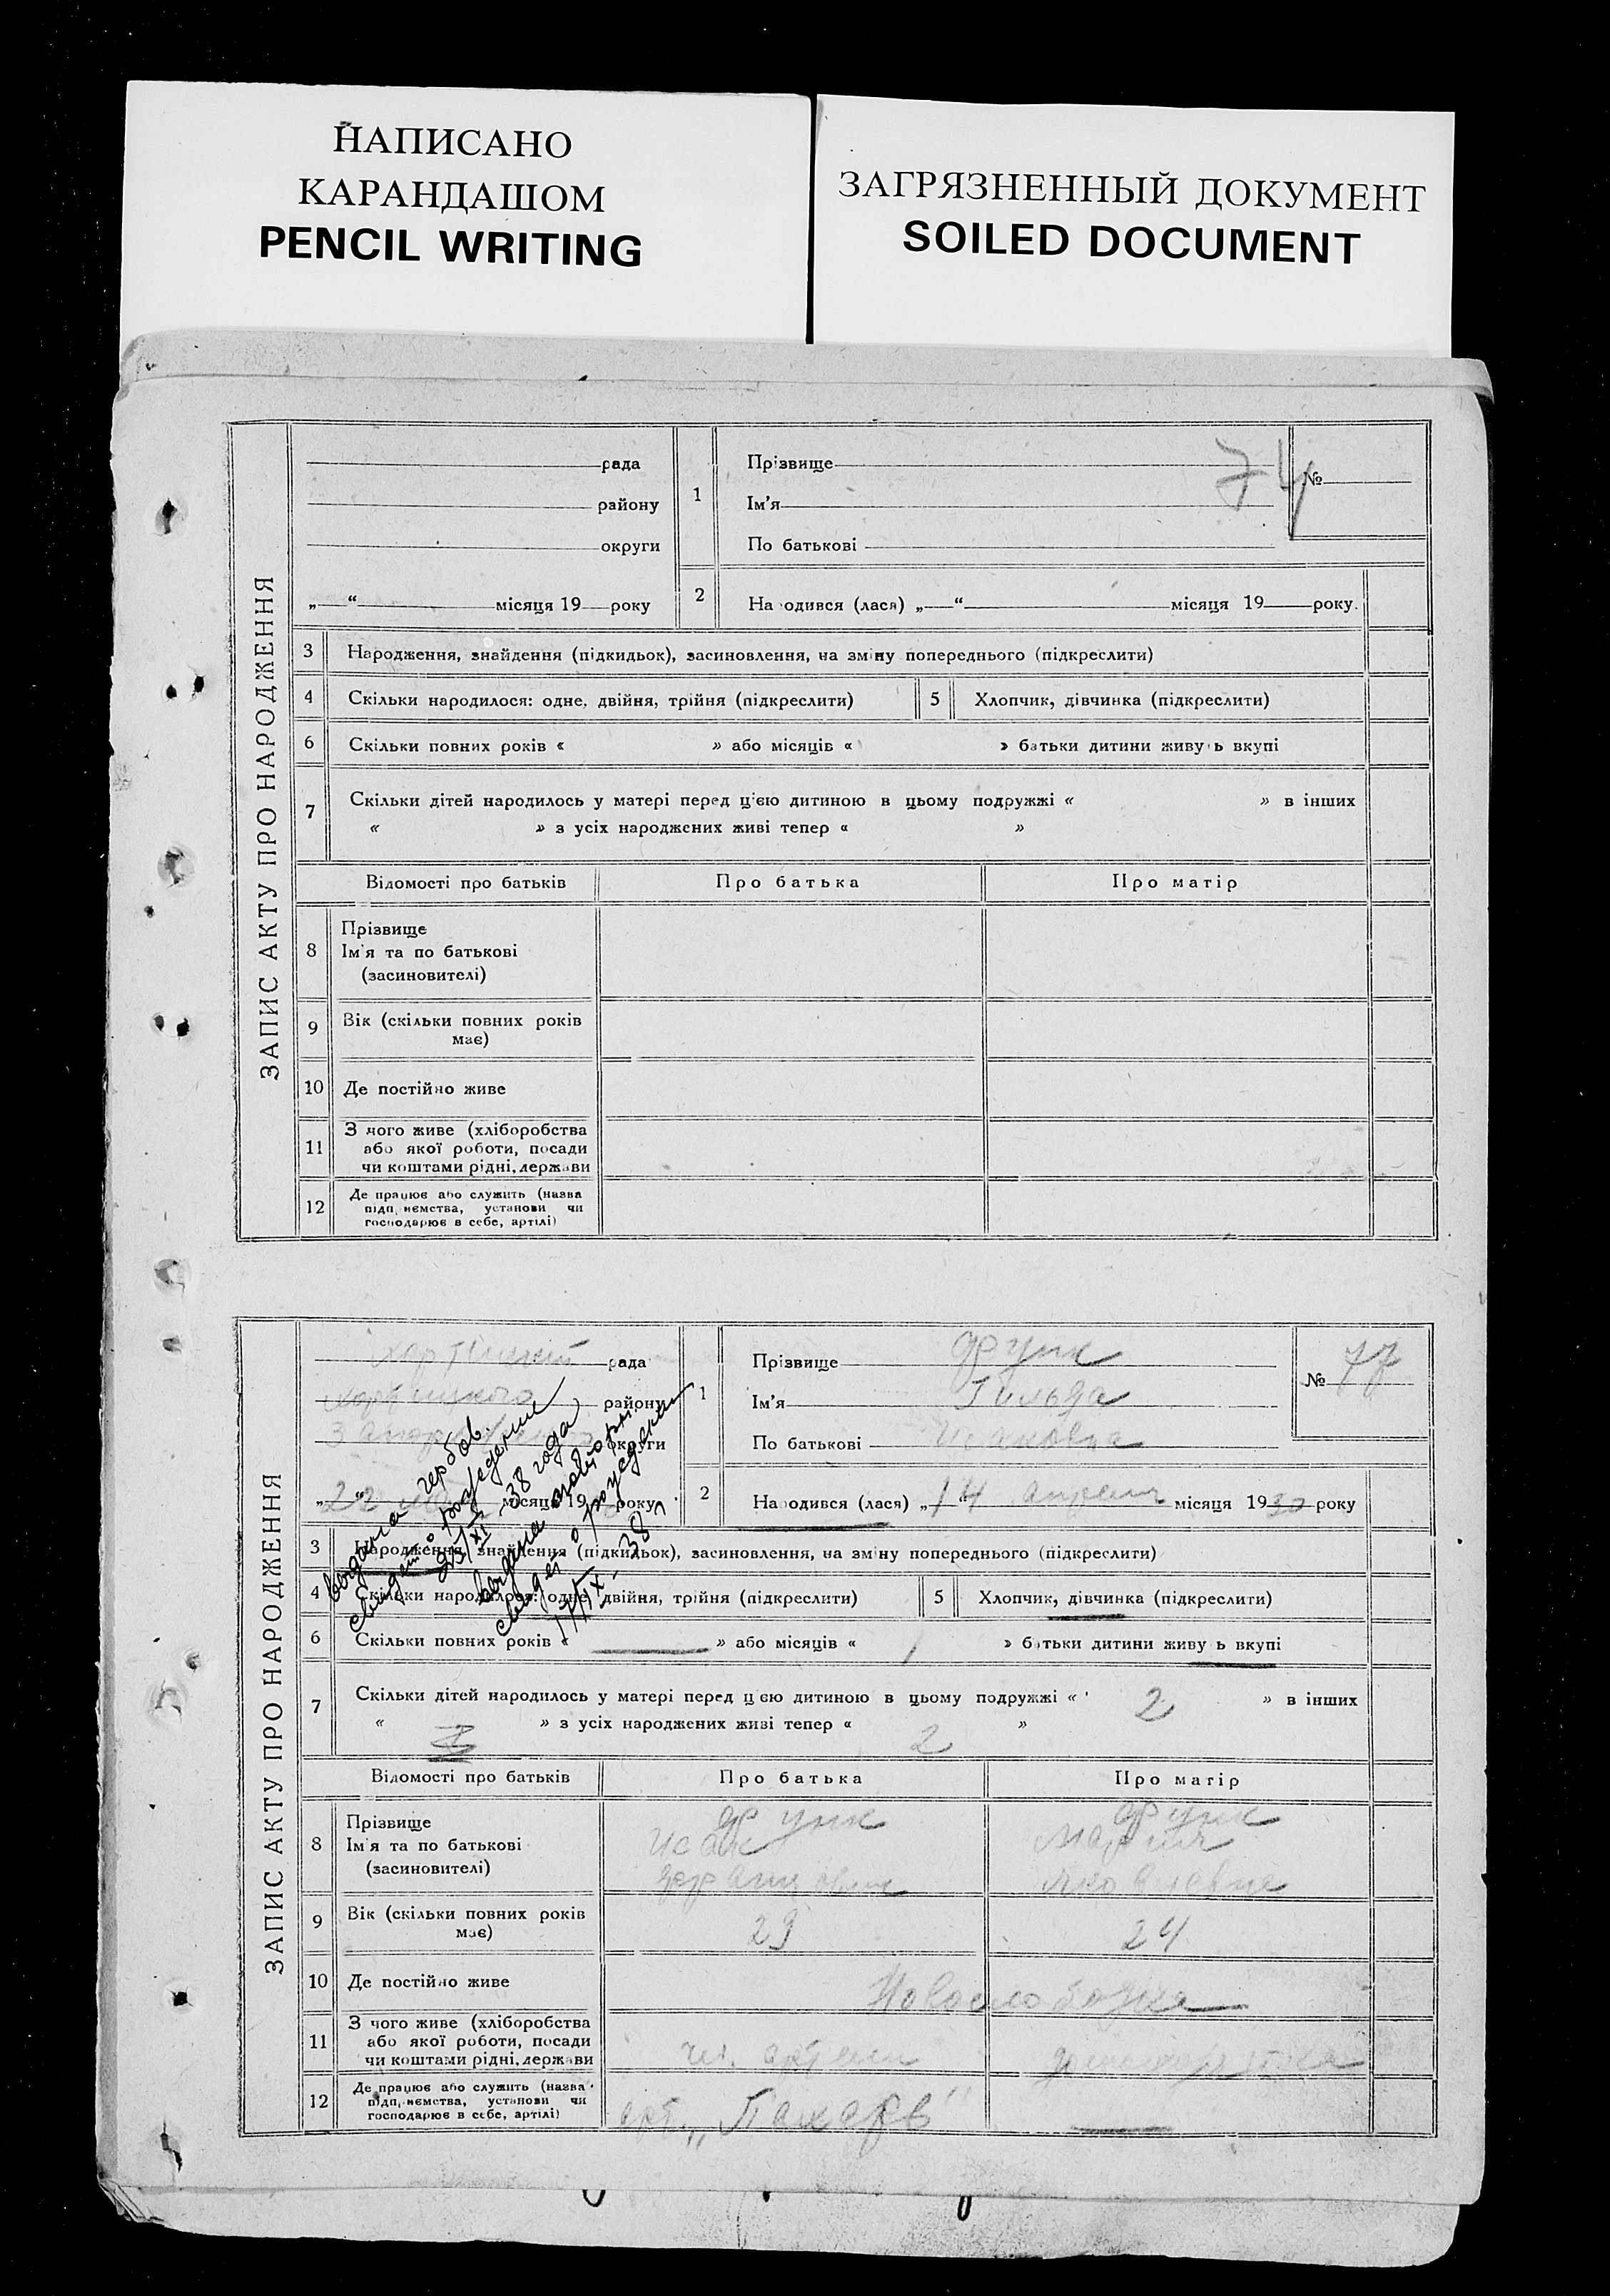 НАПИСАНО
КАРАНДАШОМ
PENCIL WRITING
ЗАГРЯЗНЕННЫЙ ДОКУМЕНТ
SOILED DOCUMENT
74
ЗАПИС АКТУ ПРО НАРОДЖЕННЯ
рада
району
округи
„ “ місяця 19 року
1
Прізвище
Ім'я
По батькові
№
2
Народився (лася) „ “ місяця 19 року.
3 Народження, знайдення (підкидьок), засиновлення, на зміну попереднього (підкреслити)
4 Скільки народилося: одне, двійня, трійня (підкреслити) 5 Хлопчик, дівчинка (підкреслити)
6 Скільки повних років « » або місяців « » батьки дитини живуть вкупі
7 Скільки дітей народилось у матері перед цією дитиною в цьому подружжі « » в інших
« » з усіх народжених живі тепер « »
Відомості про батьків Про батька Про матір
8 Прізвище
Ім'я та по батькові
(засиновителі)
9 Вік (скільки повних років
має)
10 Де постійно живе
11 З чого живе (хліборобства
або якої роботи, посади
чи коштами рідні, держави
12 Де працює або служить (назва
підприємства, установи чи
господарює в себе, артілі)
ЗАПИС АКТУ ПРО НАРОДЖЕННЯ
рада
Хортицкого району
округи
„22“ місяця 19 року
1
Прізвище Френк
Ім'я Гильда
По батькові Исаковна
№ 77
2
Народився (лася) „14“ апреля місяця 1930 року
3 Народження, знайдення (підкидьок), засиновлення, на зміну попереднього (підкреслити)
4 Скільки народилося: одне, двійня, трійня (підкреслити) 5 Хлопчик, дівчинка (підкреслити)
6 Скільки повних років « — » або місяців « » батьки дитини живуть вкупі
7 Скільки дітей народилось у матері перед цією дитиною в цьому подружжі « 2 » в інших
« » з усіх народжених живі тепер « 2 »
выдана гербов.
свидет о рождение
38 года
выдана
свидет о рождении
Відомості про батьків Про батька Про матір
8 Прізвище
Ім'я та по батькові
(засиновителі)
Френк
Исак
Френк
Мария
Яковлевна
9 Вік (скільки повних років
має)
29 24
10 Де постійно живе Новослободка
11 З чого живе (хліборобства
або якої роботи, посади
чи коштами рідні, держави
чл. артели
12 Де працює або служить (назва
підприємства, установи чи
господарює в себе, артілі)
арт. „Пахарь“ —